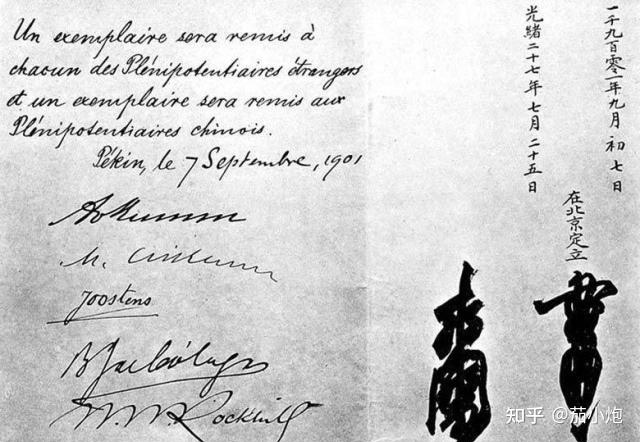 Un exemplaire sera remis à
chacun des Plénipotentiaires étrangers
et un exemplaire sera remis aux
Plénipotentiaires chinois.
Pékin, le 7 Septembre, 1901
Joostens
W. W. Rockhill
一千九百零一年九月初七日
光緒二十七年七月二十五日
在北京定立
知乎 @茄小炮